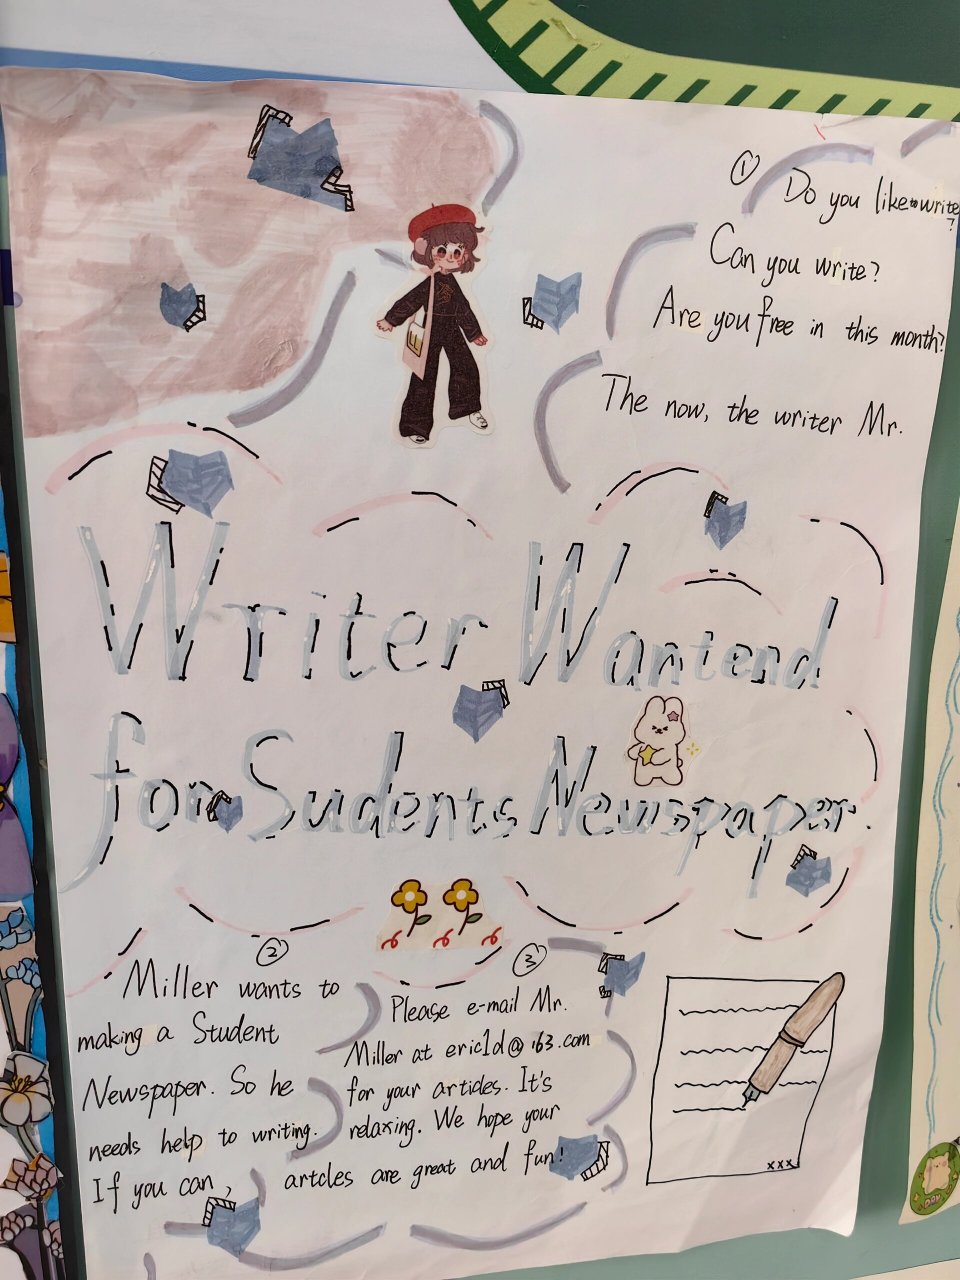 ① Do you like to write?
Can you write?
Are you free in this month?
The now, the writer Mr.
Writer Wantend
for Sudents Newspaper.
②
Miller wants to
making a Student
Newspaper. So he
needs help to writing.
If you can,
③
Please e-mail Mr.
Miller at eric1d@163.com
for your articles. It's
relaxing. We hope your
artcles are great and fun!
xxx